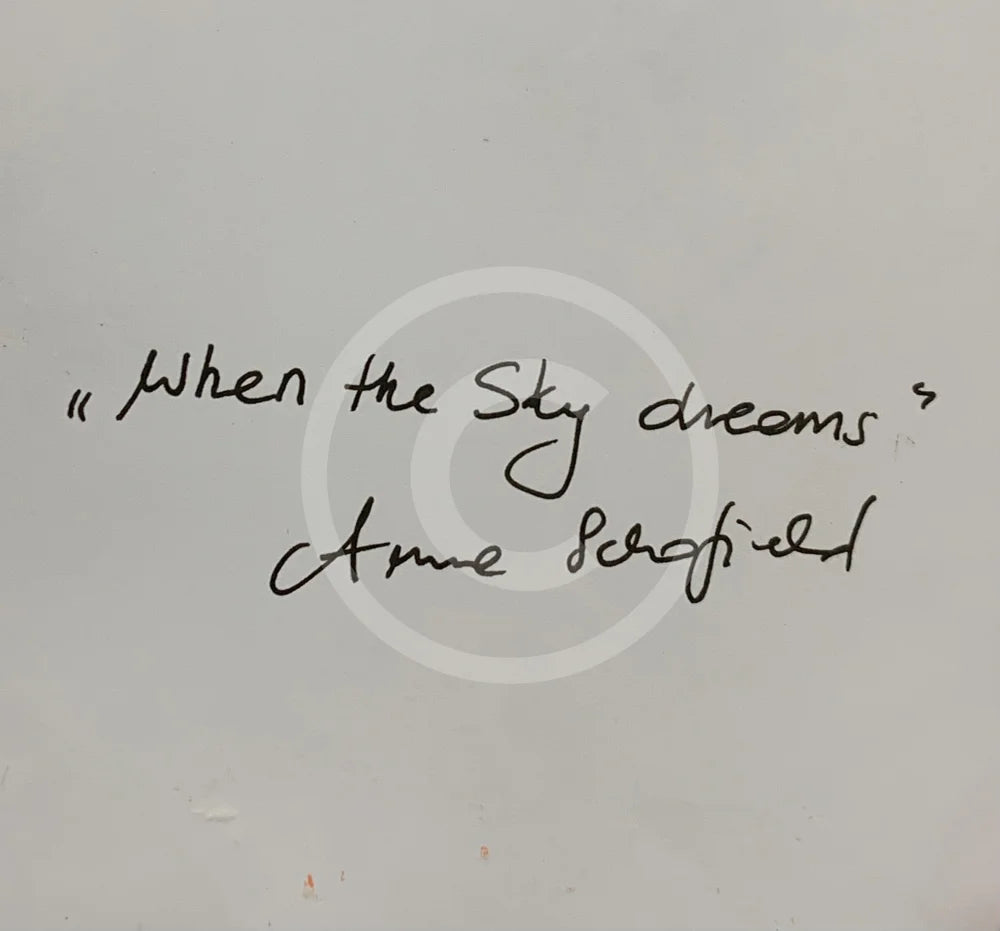 „When the Sky dreams”
Anne Schofield